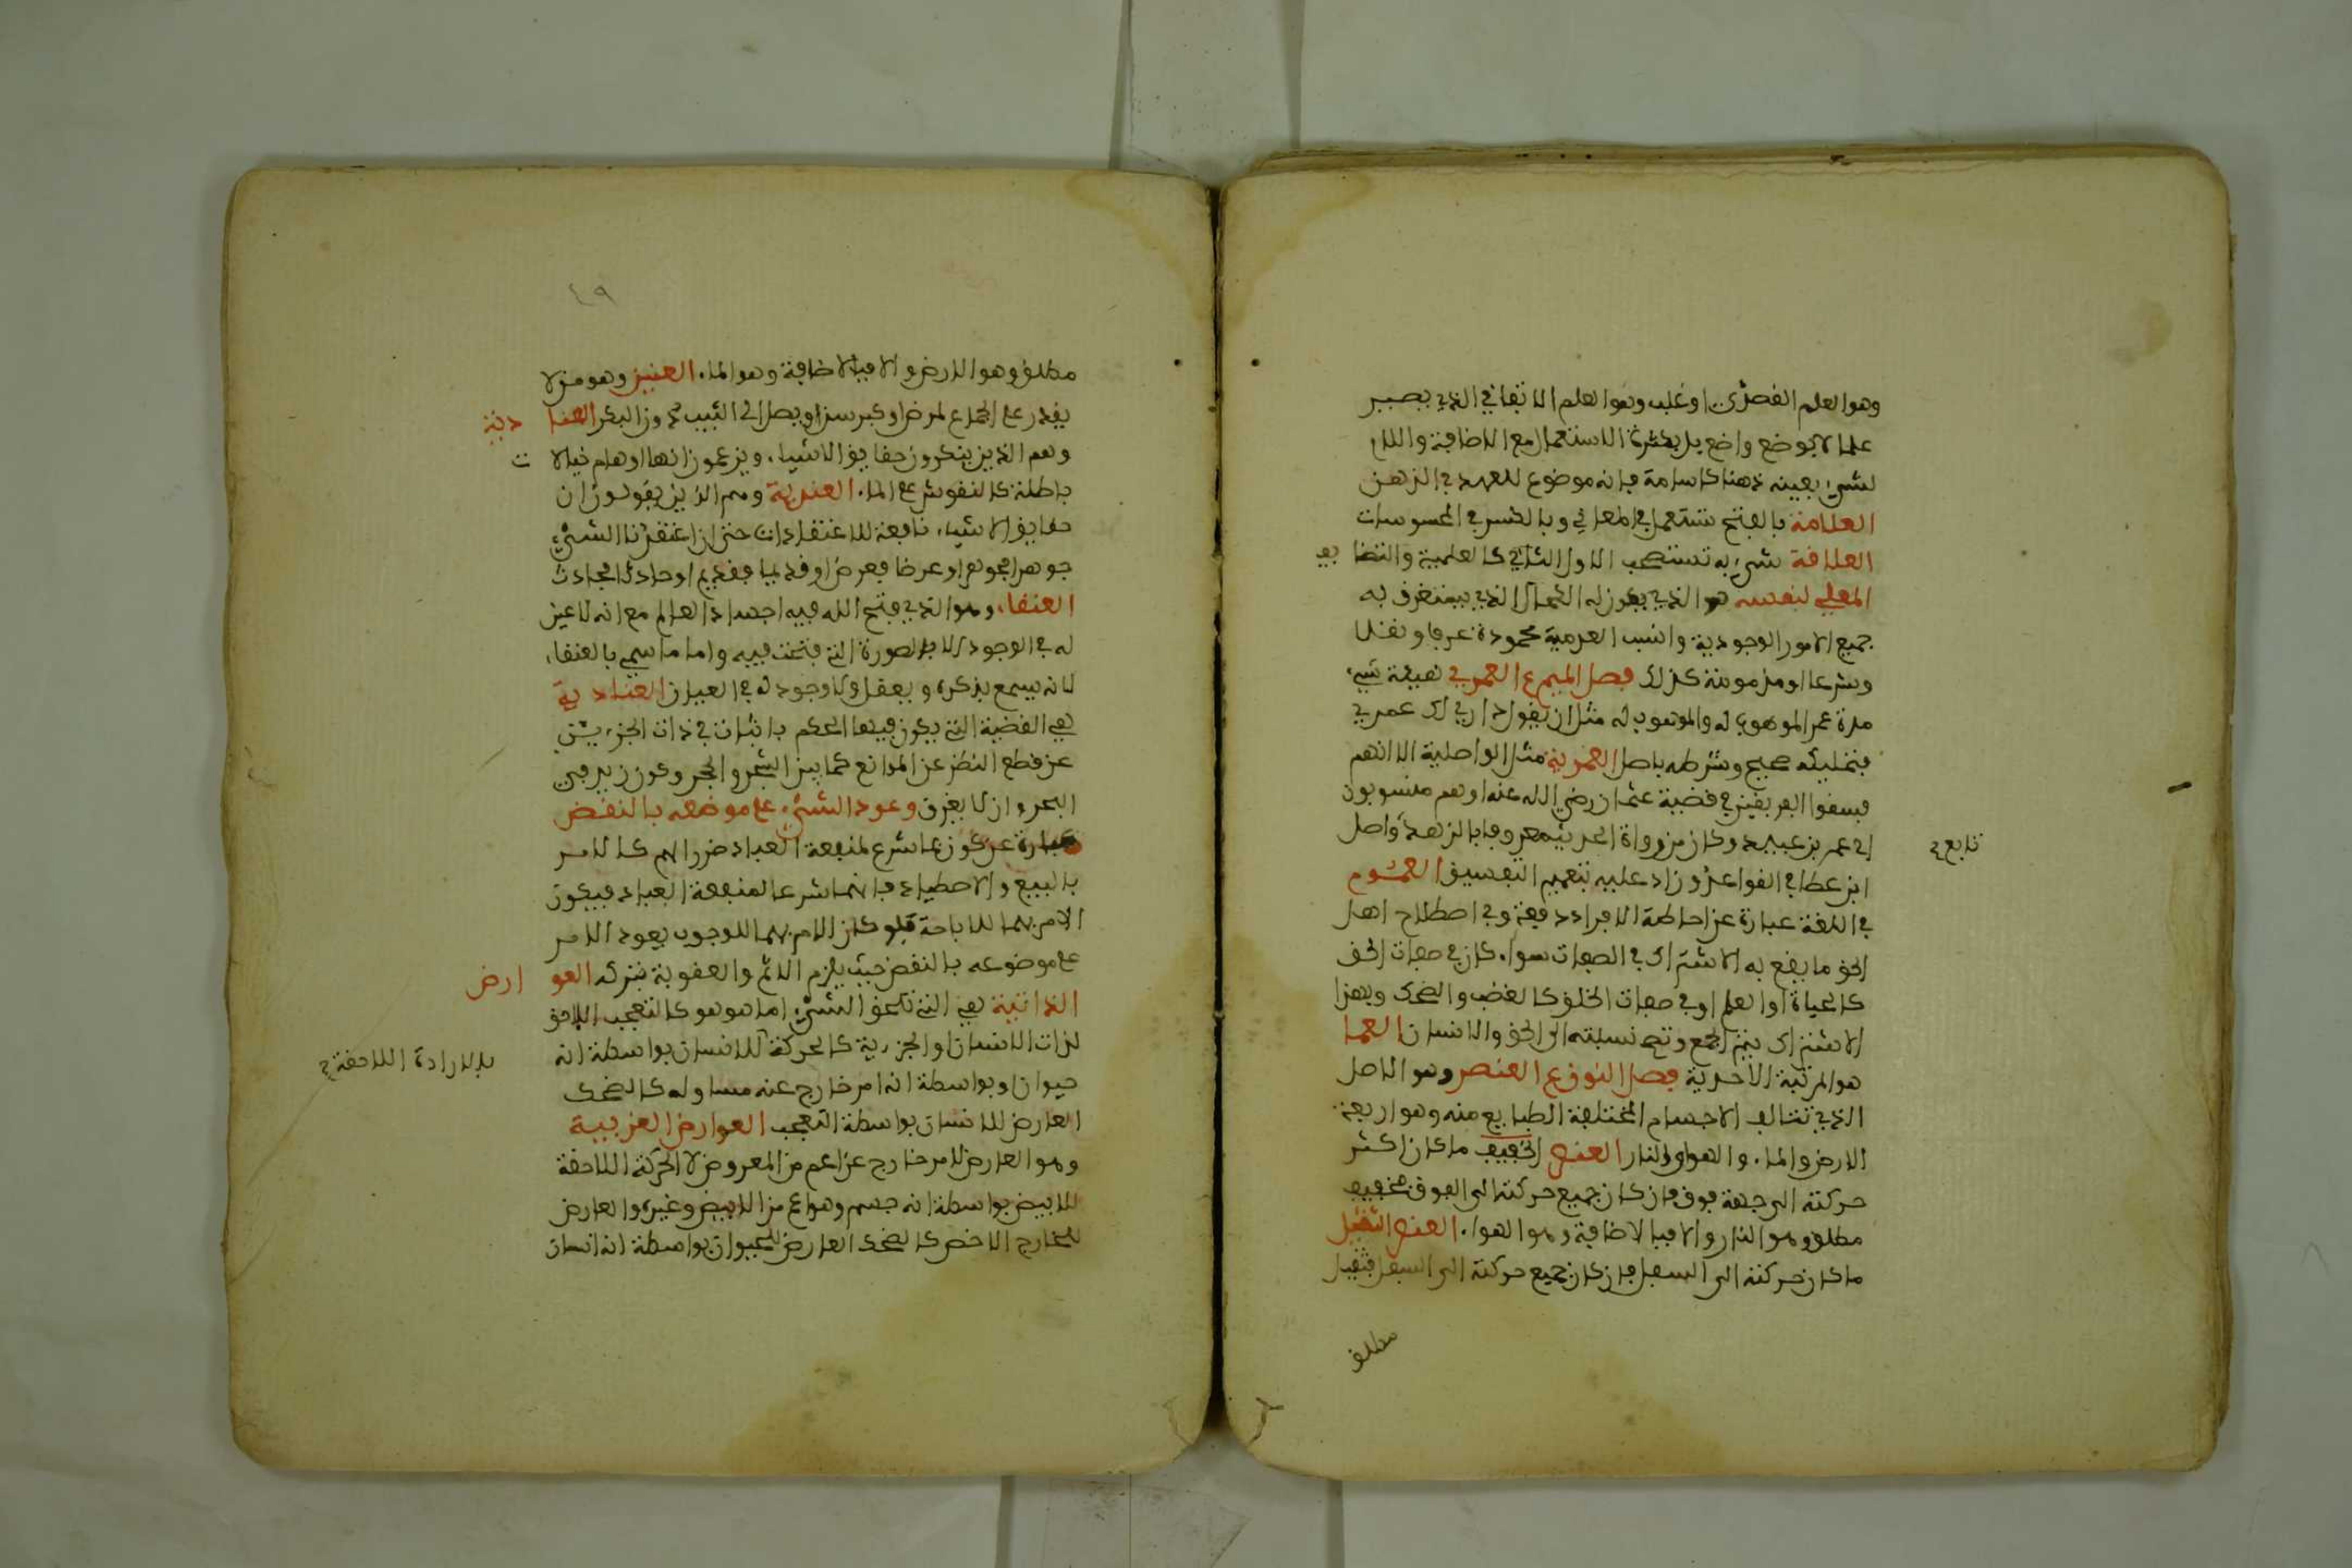 وهو العلم القصدي او غلب وهو العلم الاتفاقي الذي يصير
علما لا بوضع واضع بل بكثرة الاستعمال مع الاضافة واللام
لشيء بعينه ذهنا كاسامة فانه موضوع للمعهود في الذهن
العلامة بالفتح تستعمل في المعاني وبالكسر في المحسوسات
العلاقة شيء به تستصحب الاول الثاني كالعلمية والتضايف
العلي لنفسه هو الذي يكون له الكمال الذي يستغرق به
جميع الامور الوجودية والنسب العدمية محمودة عرفا وعقلا
وشرعا او مذمومة كذلك فصل الميم ع العمرى هيبة شيء
مدة عمر الموهوب له والموهوب له مثل ان يقول داري لك عمرى
فتمليكه صحيح وشرطه باطل العمرية مثل الواصلية الا انهم
فسقوا الفريقين في قضية عثمان رضي الله عنه وهم منسوبون
الى عمر بن عبيد وكان من رواة الحديث معروفا بالزهد واصل
تابع
ابن عطا في القواعد وزاد عليه تعميم التفسيق العموم
في اللغة عبارة عن احاطة الافراد دفعة وفي اصطلاح اهل
الحق ما يقع به الاشتراك في الصفات سواء كان في صفات الحق
كالحياة والعلم او في صفات الخلق كالغضب والضحك وبهذا
الاشتراك يتم الجمع وتصح نسبته الى الحق والانسان العما
هو المرتبة الاحدية فصل النون ع العنصر وهو الاصل
الذي تتالف الاجسام المختلفة الطبايع منه وهو اربعة
الارض والماء والهواء والنار العنصر الخفيف ما كان اكثر
حركته الى جهة فوق فان كان جميع حركته الى الفوق فخفيف
مطلق وهو النار والا فبالاضافة وهو الهواء العنصر الثقيل
ما كان حركته الى السفل فان كان جميع حركته الى السفل فثقيل
مطلق
٤٩
مطلق وهو الارض والا فبالاضافة وهو الماء العنين وهو من لا
يقدر على الجماع لمرض او كبر سن او يصل الى الثيب دون البكر العنادية
وهم الذين ينكرون حقايق الاشياء ويزعمون انها اوهام خيالات
باطلة كالنقوش على الماء العندية وهم الذين يقولون ان
حقايق الاشياء تابعة للاعتقادات حتى ان اعتقدنا الشيء
جوهرا فجوهر او عرضا فعرض او قديما فقديم او حادثا فحادث
العنقاء وهو الذي فتح الله فيه اجساد العالم مع انه لا عين
له في الوجود الا بالصورة التي فتحت فيه وانما سمي بالعنقاء
لانه يسمع بذكره ويعقل ولا وجود له في العيان العنادية
هي القضية التي يكون فيها الحكم بالتنافي في ذات الجزءين
عن قطع النظر عن الموانع كما بين الشجر والحجر وكون زيد في
البحر وان لا يغرق وعود الشيء على موضعه بالنقض
عبارة عن كون ما شرع لمنفعة العباد ضررا لهم كالامر
بالبيع والاصطياد فانهما شرعا لمنفعة العباد فيكون
الامر بهما للاباحة فلو كان الامر بهما للوجوب يعود الامر
على موضوعه بالنقض حيث يلزم الاثم والعقوبة بتركه العوارض
الذاتية هي التي تلحق الشيء اما هو هو كالتعجب اللاحق
لذات الانسان او الجزءية كالحركة للانسان بواسطة انه
بالارادة اللاحقة
حيوان وبواسطة انه امر خارج عنه مساو له كالضحك
العارض للانسان بواسطة التعجب العوارض الغريبة
وهو العارض لامر خارج عن اعم من المعروض كالحركة اللاحقة
للابيض بواسطة انه جسم وهو اعم من الابيض وغيره والعارض
للخارج الاخص كالضحك العارض للحيوان بواسطة انه انسان